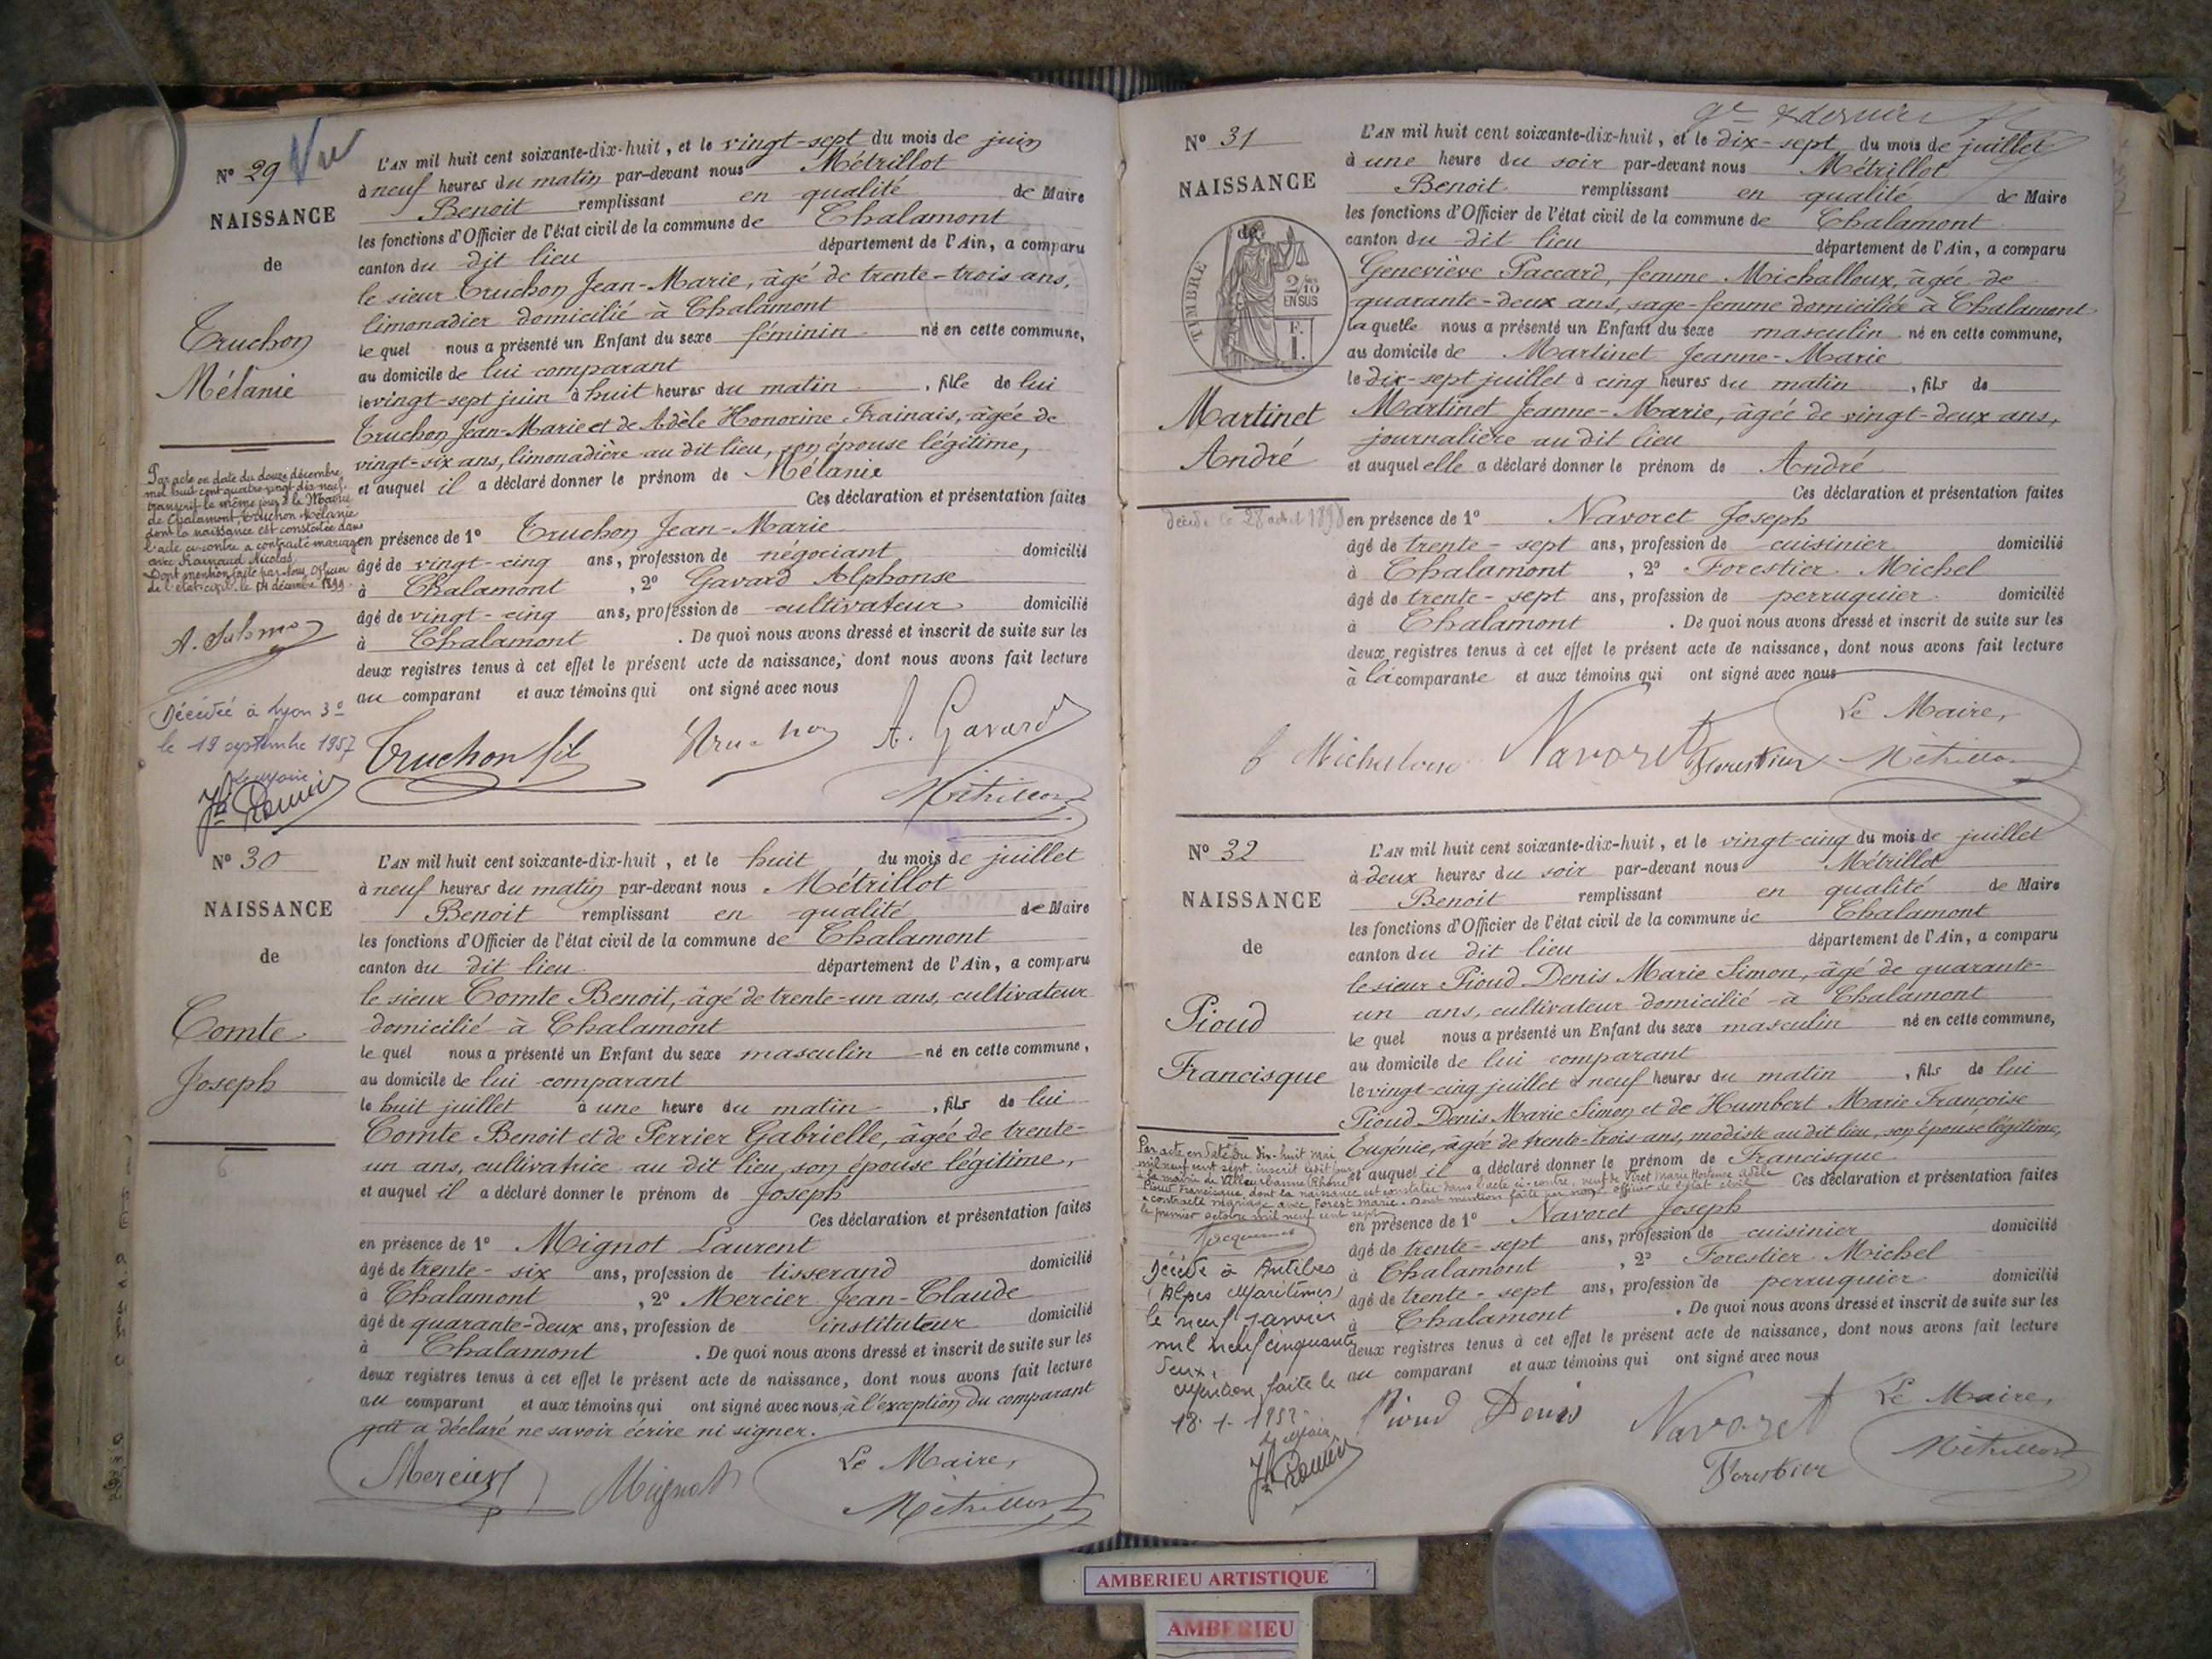 Nº 29 Vu
NAISSANCE
de
Truchon
Mélanie
L'AN mil huit cent soixante-dix-huit, et le vingt-sept du mois de juin
à neuf heures du matin par-devant nous Métrillot
Benoit remplissant en qualité de Maire
les fonctions d'Officier de l'état civil de la commune de Chalamont
canton du dit lieu département de l'Ain, a comparu
le sieur Truchon Jean-Marie, âgé de trente-trois ans,
limonadier domicilié à Chalamont
lequel nous a présenté un Enfant du sexe féminin né en cette commune,
au domicile de lui comparant
le vingt-sept juin à huit heures du matin, fille de lui
Truchon Jean-Marie et de Adèle Honorine Frainais, âgée de
vingt-six ans, limonadière au dit lieu, son épouse légitime,
et auquel il a déclaré donner le prénom de Mélanie
Ces déclaration et présentation faites
en présence de 1º Truchon Jean-Marie
âgé de vingt-cinq ans, profession de négociant domicilié
à Chalamont, 2º Gavard Alphonse
âgé de vingt-cinq ans, profession de cultivateur domicilié
à Chalamont. De quoi nous avons dressé et inscrit de suite sur les
deux registres tenus à cet effet le présent acte de naissance, dont nous avons fait lecture
au comparant et aux témoins qui ont signé avec nous
Par acte en date du douze décembre
mil huit cent quatre vingt dix neuf
transcrit le même jour à la Mairie
de Chalamont, Truchon Mélanie
dont la naissance est constatée dans
l'acte ci-contre a contracté mariage
avec Rainaud Nicolas.
Dont mention faite par Nous Officier
de l'état-civil, le 14 décembre 1899
Décédée à Lyon 3e
le 19 septembre 1957
Truchon fil Truchon A. Gavard
Métrillot
Nº 30
NAISSANCE
de
Comte
Joseph
L'AN mil huit cent soixante-dix-huit, et le huit du mois de juillet
à neuf heures du matin par-devant nous Métrillot
Benoit remplissant en qualité de Maire
les fonctions d'Officier de l'état civil de la commune de Chalamont
canton du dit lieu département de l'Ain, a comparu
le sieur Comte Benoit, âgé de trente-un ans, cultivateur
domicilié à Chalamont
lequel nous a présenté un Enfant du sexe masculin né en cette commune,
au domicile de lui comparant
le huit juillet à une heure du matin, fils de lui
Comte Benoit et de Perrier Gabrielle, âgée de trente-
un ans, cultivatrice au dit lieu, son épouse légitime,
et auquel il a déclaré donner le prénom de Joseph
Ces déclaration et présentation faites
en présence de 1º Mignot Laurent
âgé de trente-six ans, profession de tisserand domicilié
à Chalamont, 2º Mercier Jean-Claude
âgé de quarante-deux ans, profession de instituteur domicilié
à Chalamont. De quoi nous avons dressé et inscrit de suite sur les
deux registres tenus à cet effet le présent acte de naissance, dont nous avons fait lecture
au comparant et aux témoins qui ont signé avec nous, à l'exception du comparant
qui a déclaré ne savoir écrire ni signer.
Mercier Mignot Le Maire,
Métrillot
Nº 31
NAISSANCE
de
TIMBRE
2/10
EN SUS
F.
1.
Martinet
André
L'AN mil huit cent soixante-dix-huit, et le dix-sept du mois de juillet
à une heure du soir par-devant nous Métrillot
Benoit remplissant en qualité de Maire
les fonctions d'Officier de l'état civil de la commune de Chalamont
canton du dit lieu département de l'Ain, a comparu
Geneviève Paccard, femme Michalloux, âgée de
quarante-deux ans, sage-femme domiciliée à Chalamont
laquelle nous a présenté un Enfant du sexe masculin né en cette commune,
au domicile de Martinet Jeanne-Marie
le dix-sept juillet à cinq heures du matin, fils de
Martinet Jeanne-Marie, âgée de vingt-deux ans,
journalière au dit lieu
et auquel elle a déclaré donner le prénom de André
Ces déclaration et présentation faites
décédé le 28 août 1898
en présence de 1º Navoret Joseph
âgé de trente-sept ans, profession de cuisinier domicilié
à Chalamont, 2º Forestier Michel
âgé de trente-sept ans, profession de perruquier domicilié
à Chalamont. De quoi nous avons dressé et inscrit de suite sur les
deux registres tenus à cet effet le présent acte de naissance, dont nous avons fait lecture
à la comparante et aux témoins qui ont signé avec nous
Le Maire,
Navoret Forestier Métrillot
Nº 32
NAISSANCE
de
Pioud
Francisque
L'AN mil huit cent soixante-dix-huit, et le vingt-cinq du mois de juillet
à deux heures du soir par-devant nous Métrillot
Benoit remplissant en qualité de Maire
les fonctions d'Officier de l'état civil de la commune de Chalamont
canton du dit lieu département de l'Ain, a comparu
le sieur Pioud Denis Marie Simon, âgé de quarante-
un ans, cultivateur domicilié à Chalamont
lequel nous a présenté un Enfant du sexe masculin né en cette commune,
au domicile de lui comparant
le vingt-cinq juillet à neuf heures du matin, fils de lui
Pioud Denis Marie Simon et de Humbert Marie Françoise
Eugénie, âgée de trente-trois ans, modiste au dit lieu, son épouse légitime,
et auquel il a déclaré donner le prénom de Francisque
Ces déclaration et présentation faites
en présence de 1º Navoret Joseph
âgé de trente-sept ans, profession de cuisinier domicilié
à Chalamont, 2º Forestier Michel
âgé de trente-sept ans, profession de perruquier domicilié
à Chalamont. De quoi nous avons dressé et inscrit de suite sur les
deux registres tenus à cet effet le présent acte de naissance, dont nous avons fait lecture
au comparant et aux témoins qui ont signé avec nous
Par acte en date du dix-huit mai
mil neuf cent sept, inscrit ledit jour
à la mairie de Villeurbanne (Rhône)
Pioud Francisque dont la naissance est constatée dans l'acte ci-contre, veuf de Viret Marie Hortense Adèle
a contracté mariage avec Forest Marie. Dont mention faite par nous officier de l'état civil
le premier octobre mil neuf cent sept
Décédé à Antibes
(Alpes Maritimes)
le neuf janvier
mil neuf cinquante
deux.
Mention faite le
18.1.1952
Pioud Denis Navoret Le Maire,
Forestier Métrillot
AMBERIEU ARTISTIQUE
AMBERIEU